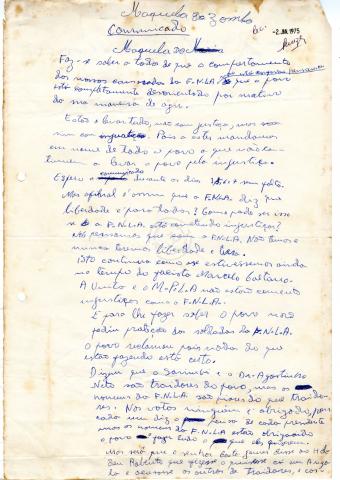 Maquela do Zombo
Comunicado
Rec.
-2 JUL 1975
Maquela do
Faz-se saber a todos de que o comportamento
dos nossos camaradas da F.N.L.A. que o povo
está completamente desorientado por motivo
da sua maneira de agir.
Estão a levar tudo, não com justiça, mas
sim com injustiça. Pois a estes mandamos
em nome de todo o povo a que não con-
tinuem a levar o povo pela injustiça.
Espero o comunicado durante os dias
Mas afinal é assim que a F.N.L.A. diz que
liberdade é para todos? Como pode ser isso
se a F.N.L.A. está cometendo injustiças?
Nós pensamos que com a F.N.L.A. não temos e
nunca teremos liberdade e
isto continua como se estivéssemos ainda
no tempo do fascista Marcelo Caetano.
A Unita e o M.P.L.A. não estão cometendo
injustiças como a F.N.L.A.
E para lhe fazer saber o povo não
pediu protecção dos soldados da F.N.L.A.
O povo reclamou pois nada do que
estão fazendo está certo.
Dizem que o Savimbi e o Dr. Agostinho
Neto são traidores do povo, mas os
homens da F.N.L.A. são piores do que traido-
res. Nos votos ninguém é obrigado, pois
cada um diz o nome de cada presidente
mas os homens da F.N.L.A. estão obrigando
o povo a fazer tudo o que eles querem.
Mas será que o senhor disse ao H do
Sr. Roberto que
e acusasse os outros de traidores, e cas-